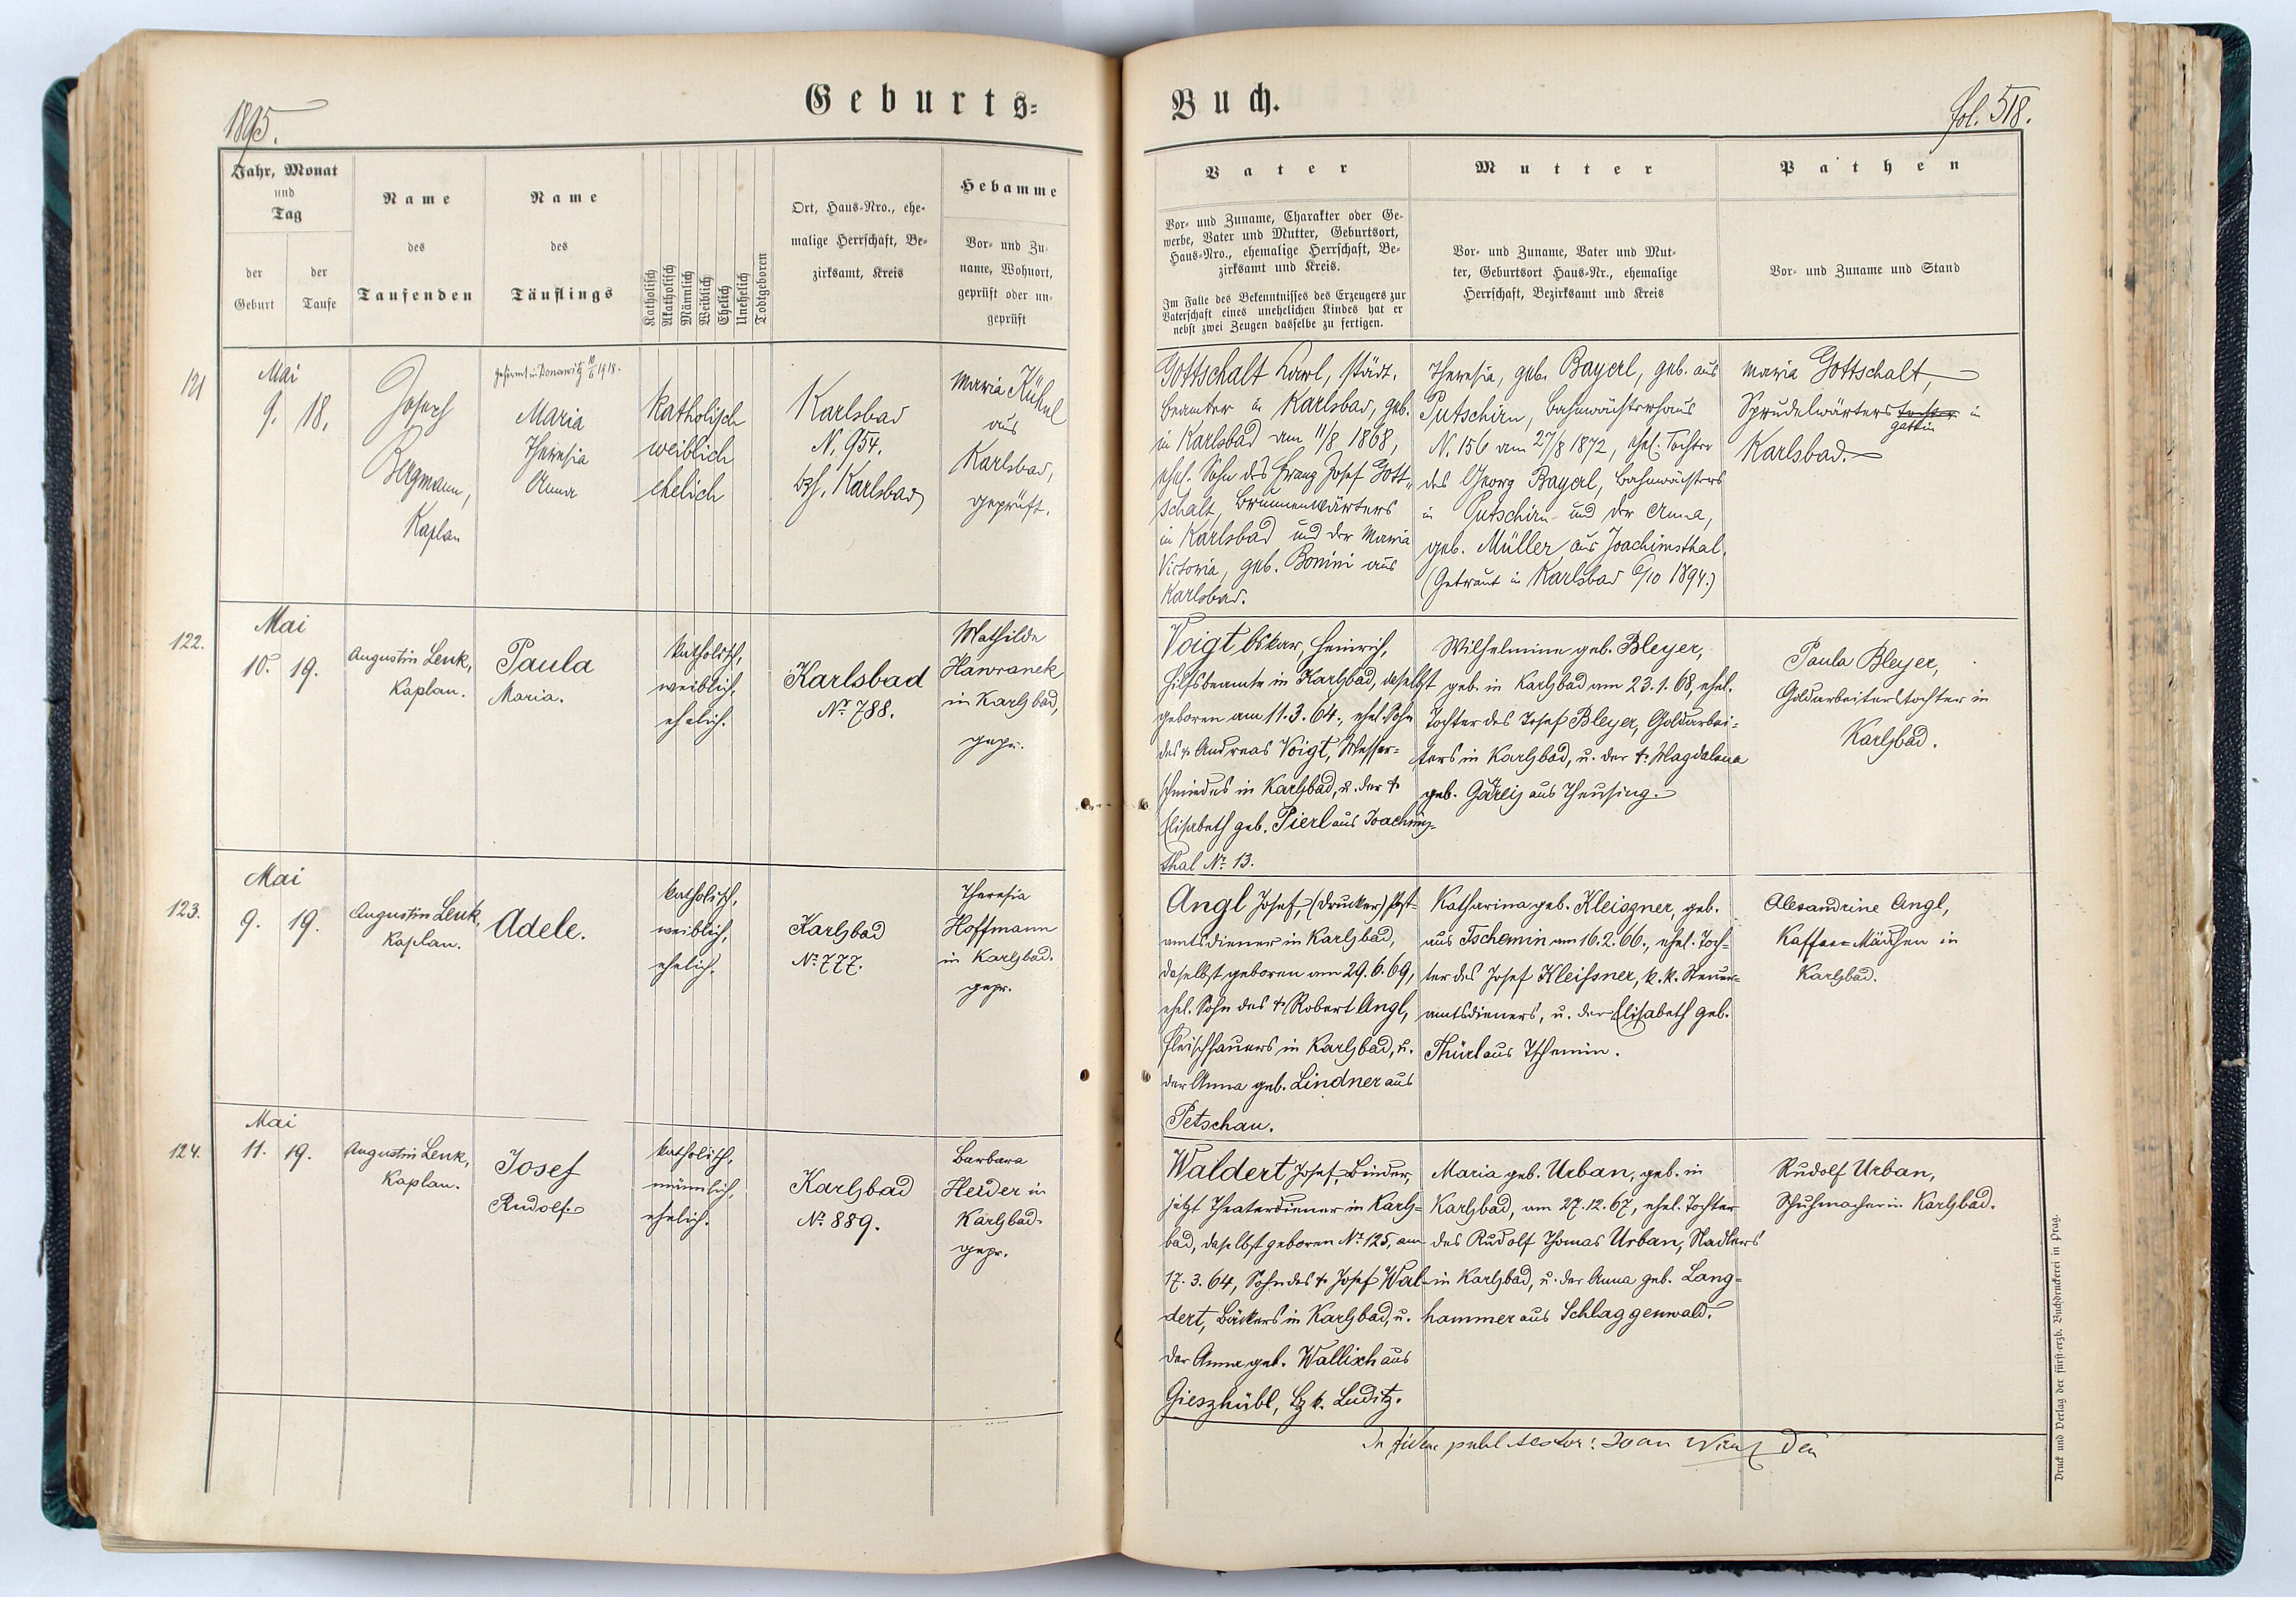 1895.
Geburts=
Jahr, Monat
und
Tag
der
Geburt
der
Taufe
Name
des
Taufenden
Name
des
Täuflings
Katholisch
Akatholisch
Männlich
Weiblich
Ehelich
Unehelich
Todtgeboren
Ort, Haus-Nro., ehe-
malige Herrschaft, Be-
zirksamt, Kreis
Hebamme
Vor- und Zu-
name, Wohnort,
geprüft oder un-
geprüft
121
Mai
9. 18.
Josef
Bergmann,
Kaplan
gefirmt in Donawitz 10/6 1918.
Maria
Theresia
Anna
katholisch
weiblich
ehelich
Karlsbad
N. 954.
bzh. Karlsbad
Maria Kühnl
aus
Karlsbad,
geprüft.
122.
Mai
10. 19.
Augustin Lenk,
Kaplan.
Paula
Maria.
katholisch,
weiblich,
ehelich.
Karlsbad
No 788.
Mathilde
Hawranek
in Karlsbad,
gepr.
123.
Mai
9. 19.
Augustin Lenk
Kaplan.
Adele.
katholisch,
weiblich,
ehelich.
Karlsbad
No 777.
Theresia
Hoffmann
in Karlsbad.
gepr.
124.
Mai
11. 19.
Augustin Lenk,
Kaplan.
Josef
Rudolf.
katholisch,
männlich,
ehelich.
Karlsbad
No 889.
Barbara
Heider in
Karlsbad.
gepr.
Buch.
fol. 518.
Vater
Vor- und Zuname, Charakter oder Ge-
werbe, Vater und Mutter, Geburtsort,
Haus-Nro., ehemalige Herrschaft, Be-
zirksamt und Kreis.
Im Falle des Bekenntnisses des Erzeugers zur
Vaterschaft eines unehelichen Kindes hat er
nebst zwei Zeugen dasselbe zu fertigen.
Mutter
Vor- und Zuname, Vater und Mut-
ter, Geburtsort Haus-Nr., ehemalige
Herrschaft, Bezirksamt und Kreis
Pathen
Vor- und Zuname und Stand
Gottschalt Karl, städt.
Beamter in Karlsbad, geb.
in Karlsbad am 11/8 1868,
ehel. Sohn des Franz Josef Gott-
schalt, Brunnenwärters
in Karlsbad und der Maria
Victoria, geb. Bonini aus
Karlsbad.
Theresia, geb. Bayerl, geb. aus
Putschirn, Bahnwächterhaus
N. 156 am 27/8 1872, ehel. Tochter
des Georg Bayerl, Bahnwächters
in Putschirn und der Anna,
geb. Müller aus Joachimsthal.
(Getraut in Karlsbad 6/10 1894.)
Maria Gottschalt,
Sprudelwärters tochter in
gattin
Karlsbad.
Voigt Oskar, Heinrich,
Hilfsbeamte in Karlsbad, daselbst
geboren am 11.3.64., ehel. Sohn
des † Andreas Voigt, Messer=
schmiedes in Karlsbad, u. der †
Elisabeth geb. Pierl aus Joachims-
thal No 13.
Wilhelmine geb. Bleyer,
geb. in Karlsbad am 23.1.68, ehel.
Tochter des Josef Bleyer, Goldarbei=
ters in Karlsbad, u. der † Magdalena
geb. Gareis aus Theusing.
Paula Bleyer,
Goldarbeiterstochter in
Karlsbad.
Angl Josef, (Drucker) Post=
amtsdiener in Karlsbad,
daselbst geboren am 29.6.69,
ehel. Sohn des † Robert Angl,
Fleischhauers in Karlsbad, u.
der Anna geb. Lindner aus
Petschau.
Katharina geb. Kleiszner, geb.
aus Tschemin am 16.2.66., ehel. Toch=
ter des Josef Kleißner, k. k. Steuer=
amtsdieners, u. der Elisabeth geb.
Thürl aus Tschemin.
Alexandrine Angl,
Kaffee=Mädchen in
Karlsbad.
Waldert Josef, Binder,
jetzt Theaterdiener in Karls=
bad, daselbst geboren No 125, am
17.3.64, Sohn des † Josef Wal-
dert, Bäckers in Karlsbad, u.
der Anna geb. Wallisch aus
Gieszhübl, Bzk. Luditz.
Maria geb. Urban, geb. in
Karlsbad, am 27.12.67, ehel. Tochter
des Rudolf Thomas Urban, Nadlers
in Karlsbad, u. der Anna geb. Lang=
hammer aus Schlaggenwald.
Rudolf Urban,
Schuhmacher in Karlsbad.
Druck und Verlag der fürst-erzb. Buchdruckerei in Prag.